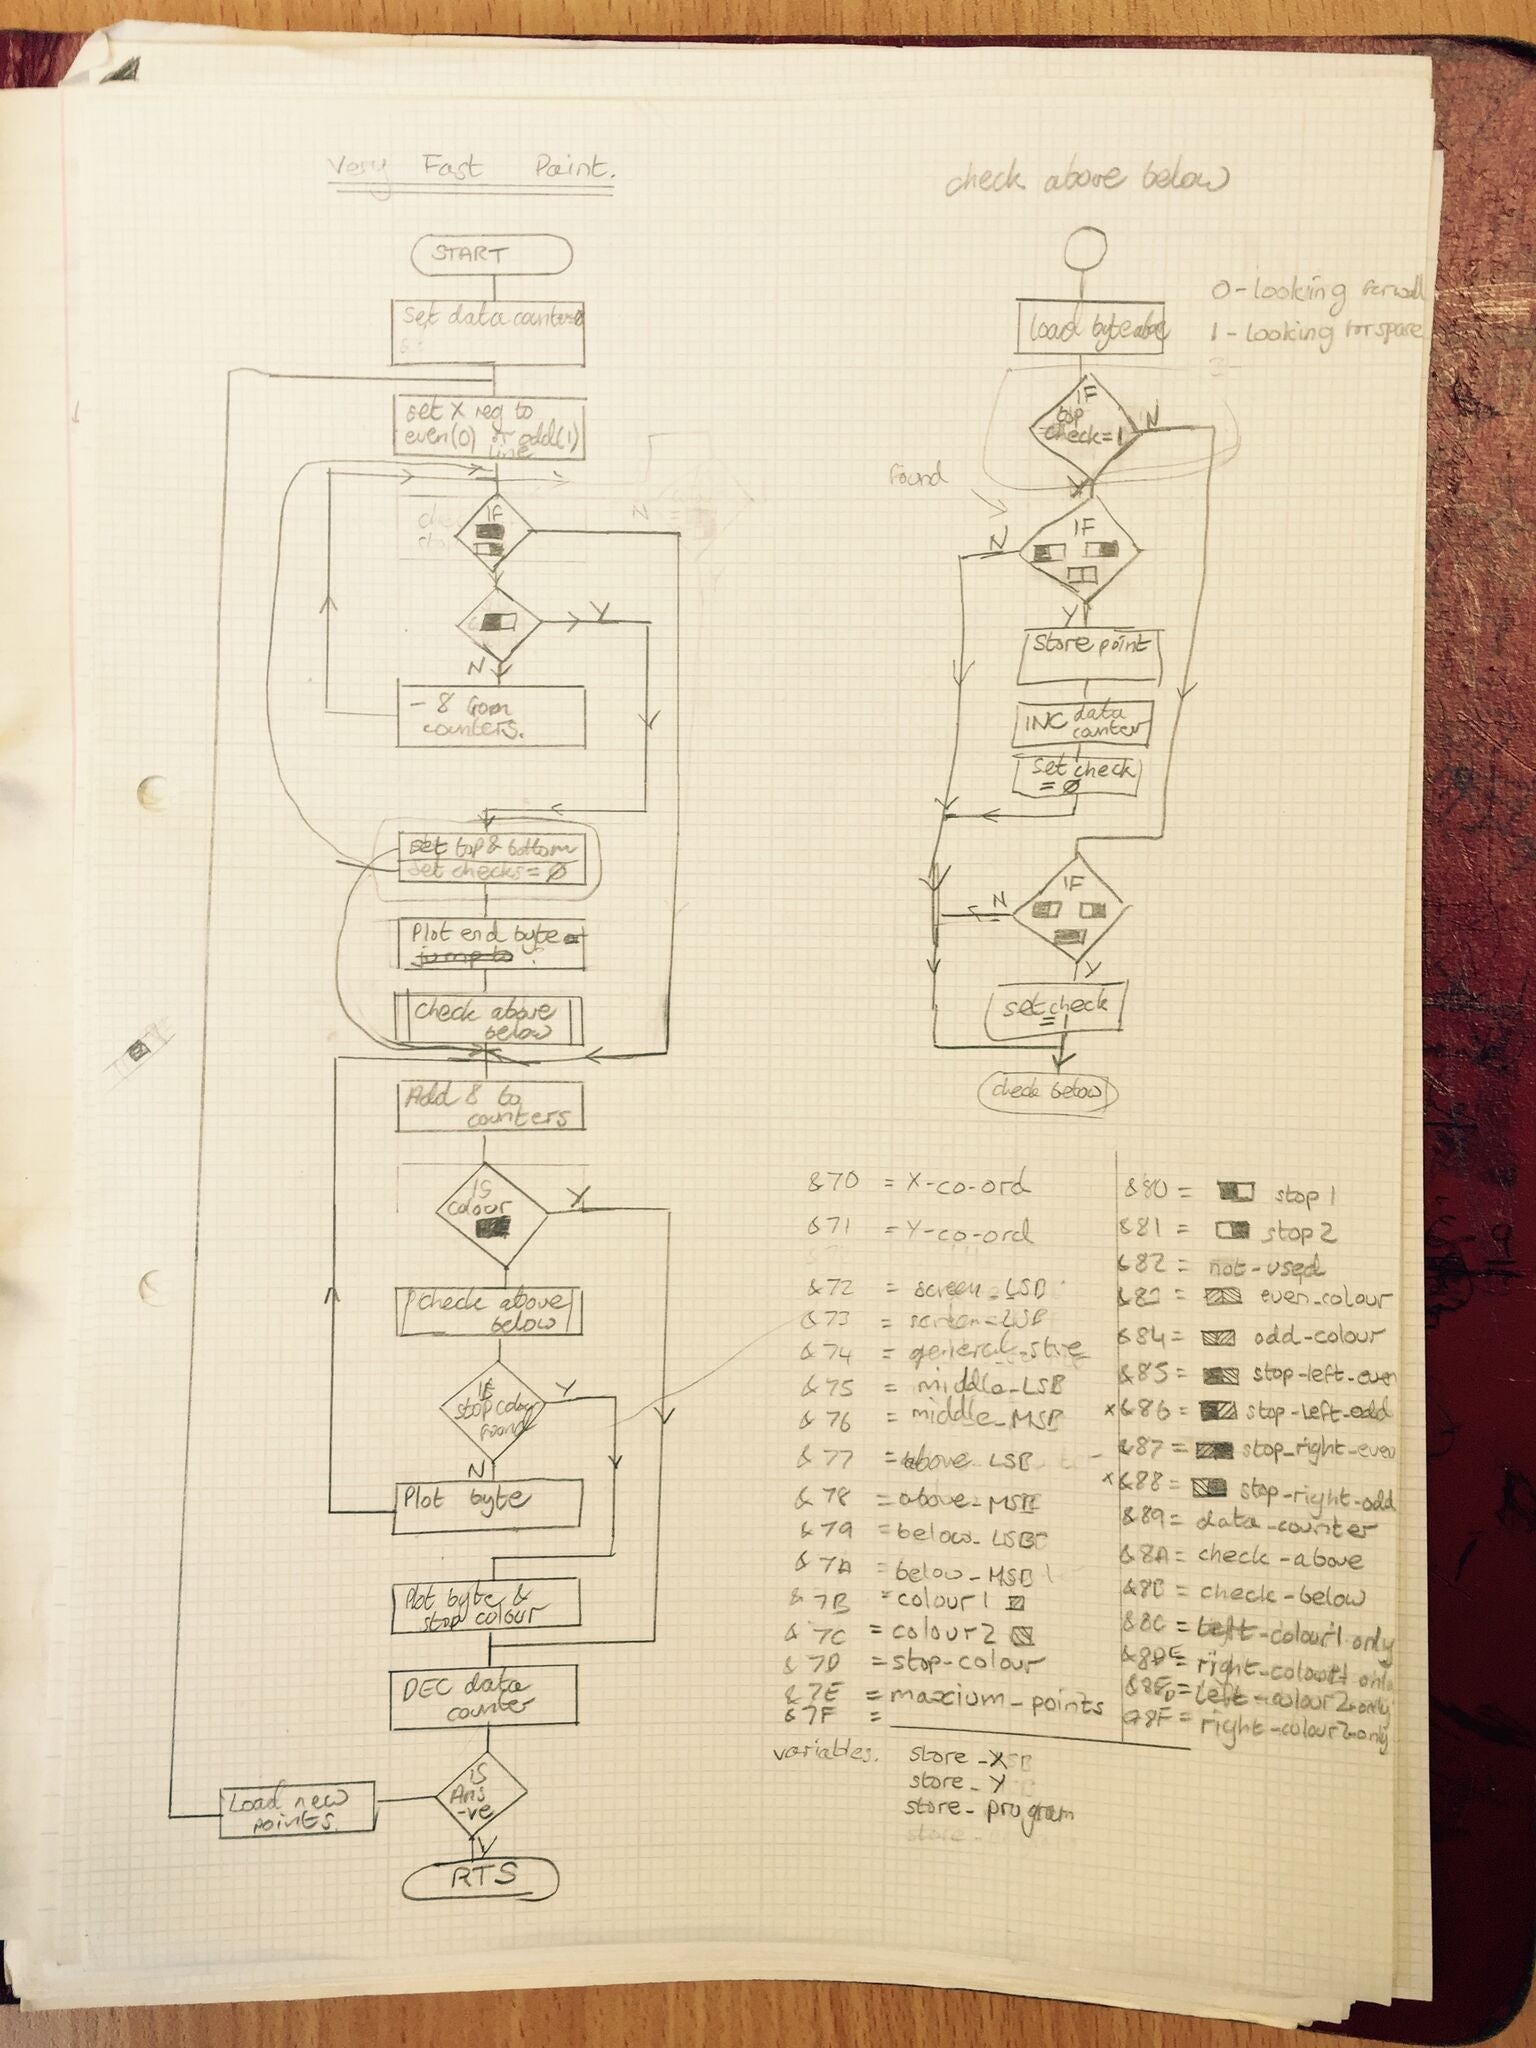 Very Fast Paint.
START
Set data counter=0
set X reg to
even(0) or odd(1)
line
IF
Y
N
- 8 from
counters.
set top & bottom
set checks = Ø
Plot end byte or
jump to ?
Check above
below
Add 8 to
counters
IS
colour
Y
check above
below
IF
stop colour
found
Y
N
Plot byte
Plot byte &
stop colour
DEC data
counter
IS
Ans
-ve
Y
Load new
points.
RTS
check above below
0-looking for wall
1-looking for space
Load byte above
IF
top
check=1
N
Y
found
IF
N
Y
Store point
INC data
counter
set check
= Ø
IF
N
Y
set check
=
check below
&70 = X-co-ord
&71 = Y-co-ord
&72 = screen_LSB
&73 =
&74 = general_store
&75 = middle_LSB
&76 = middle_MSB
&77 = above_LSB
&78 = above_MSB
&79 = below_LSB
&7A = below_MSB
&7B = colour1
&7C = colour2
&7D = stop-colour
&7E = maxcium_points
&7F =
variables.
store_X
store_Y
store_program
&80 = stop 1
&81 = stop 2
&82 = not-used
&83 = even_colour
&84 = odd-colour
&85 = stop-left-even
x&86 = stop-left-odd
&87 = stop_right-even
x&88 = stop-right-odd
&89 = data-counter
&8A = check-above
&8B = check-below
&8C = left-colour1 only
right-colour1 only
left-colour2-only
&8F = right-colour2-only